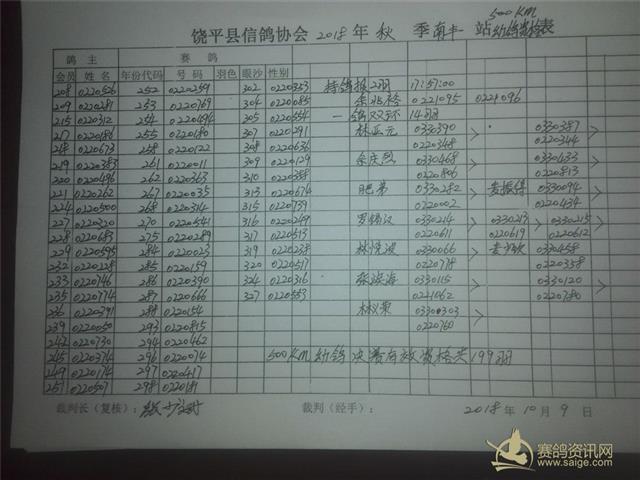 500KM
饶平县信鸽协会 2018 年 秋 季南丰 站幼鸽资格表
鸽 主 赛 鸽
会员 姓 名 年份代码 号 码 羽色 眼沙 性别
208 0220526 252 0220259 302 0220353 持鸽报2羽 17:57:00
209 0220281 253 0220769 304 0220085 0221095 0221096
215 0220312 254 0220494 305 0220554 一鸽双环 14羽
217 0220186 255 0220180 307 0220291 林正元 0330390 > 0330387 >
218 0220673 258 0220122 308 0220636 0220348 0220344
219 0220383 261 0220011 309 0220129 余庆烈 0330468 > 0330433 >
220 0220496 262 0220363 310 0220388 0220806 0220813
221 0220262 267 0220035 313 0220674 肥弟 0330282 > 0330094 >
224 0220500 268 0220314 315 0220739 0220002 0220434
227 0220320 270 0220541 316 0220249 罗锦汉 0330214 > 0330213 > 0330215 >
228 0220683 275 0220289 317 0220513 0220611 0220619 0220612
229 0220595 284 0220023 319 0220238 0330066 > 0330458 >
232 0220228 285 0220159 320 0220517 0220778 0220358
233 0220746 286 0220390 324 0220316 0330115 > 0330120 >
235 0220774 287 0220666 327 0220553 0221062 0220780
236 0220391 288 0220154 0330303 >
239 0220050 293 0220815 0220760
242 0220730 294 0220462
245 0220374 296 0220074 500KM幼鸽决赛有效资格共199羽
249 0220174 297 0220417
251 0220507 298 0220181
裁判长（复核）： 裁判（经手）： 2018 年 10 月 9 日
赛鸽资讯网
www.saige.com